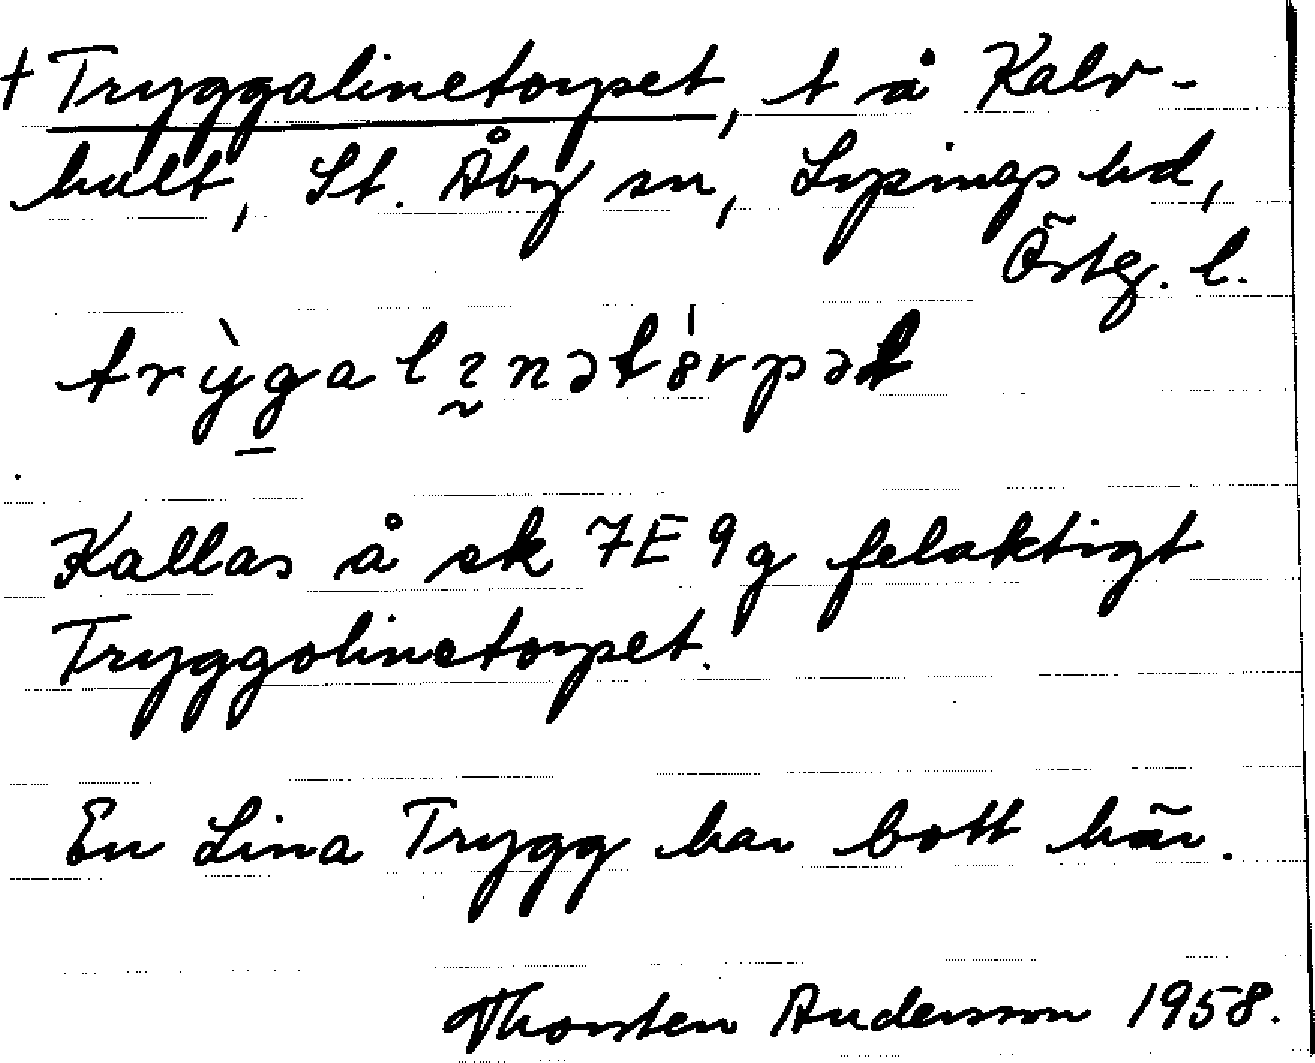 † Tryggalinetorpet, t å Kalv-
hult, St. Åby sn, Lysings hd,
Östg. l.
Kallas å ek 7E 9g felaktigt
Tryggolinetorpet.
En Lina Trygg har bott här.
Thorsten Andersson 1958.